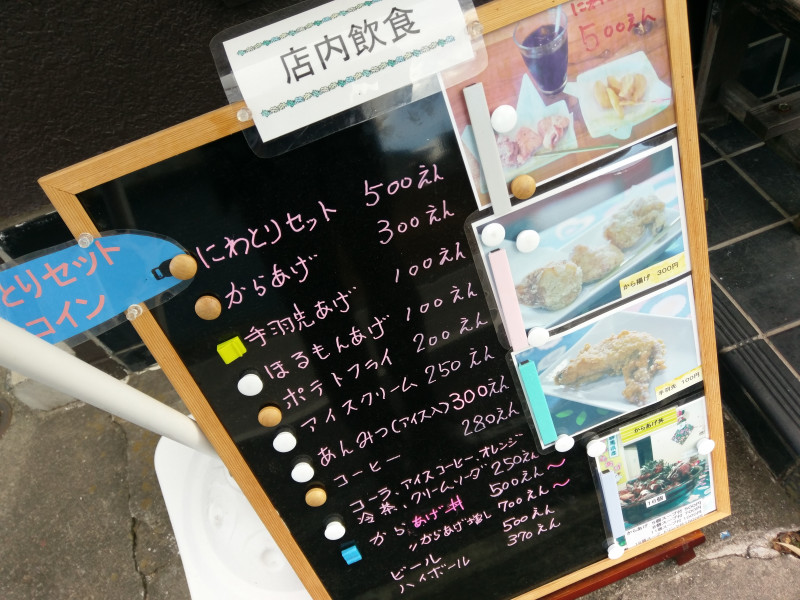 店内飲食
500えん
とりセット
コイン
にわとりセット 500えん
からあげ 300えん
手羽先あげ 100えん
ほるもんあげ 100えん
ポテトフライ 200えん
アイスクリーム 250えん
あんみつ(アイス入) 300えん
コーヒー 280えん
コーラ、アイスコーヒー、オレンジ
冷茶、クリームソーダ 250えん
からあげ丼 500えん〜
〃からあげ増し 700えん〜
ビール 500えん
ハイボール 370えん
から揚げ 300円
手羽先 100円
からあげ丼